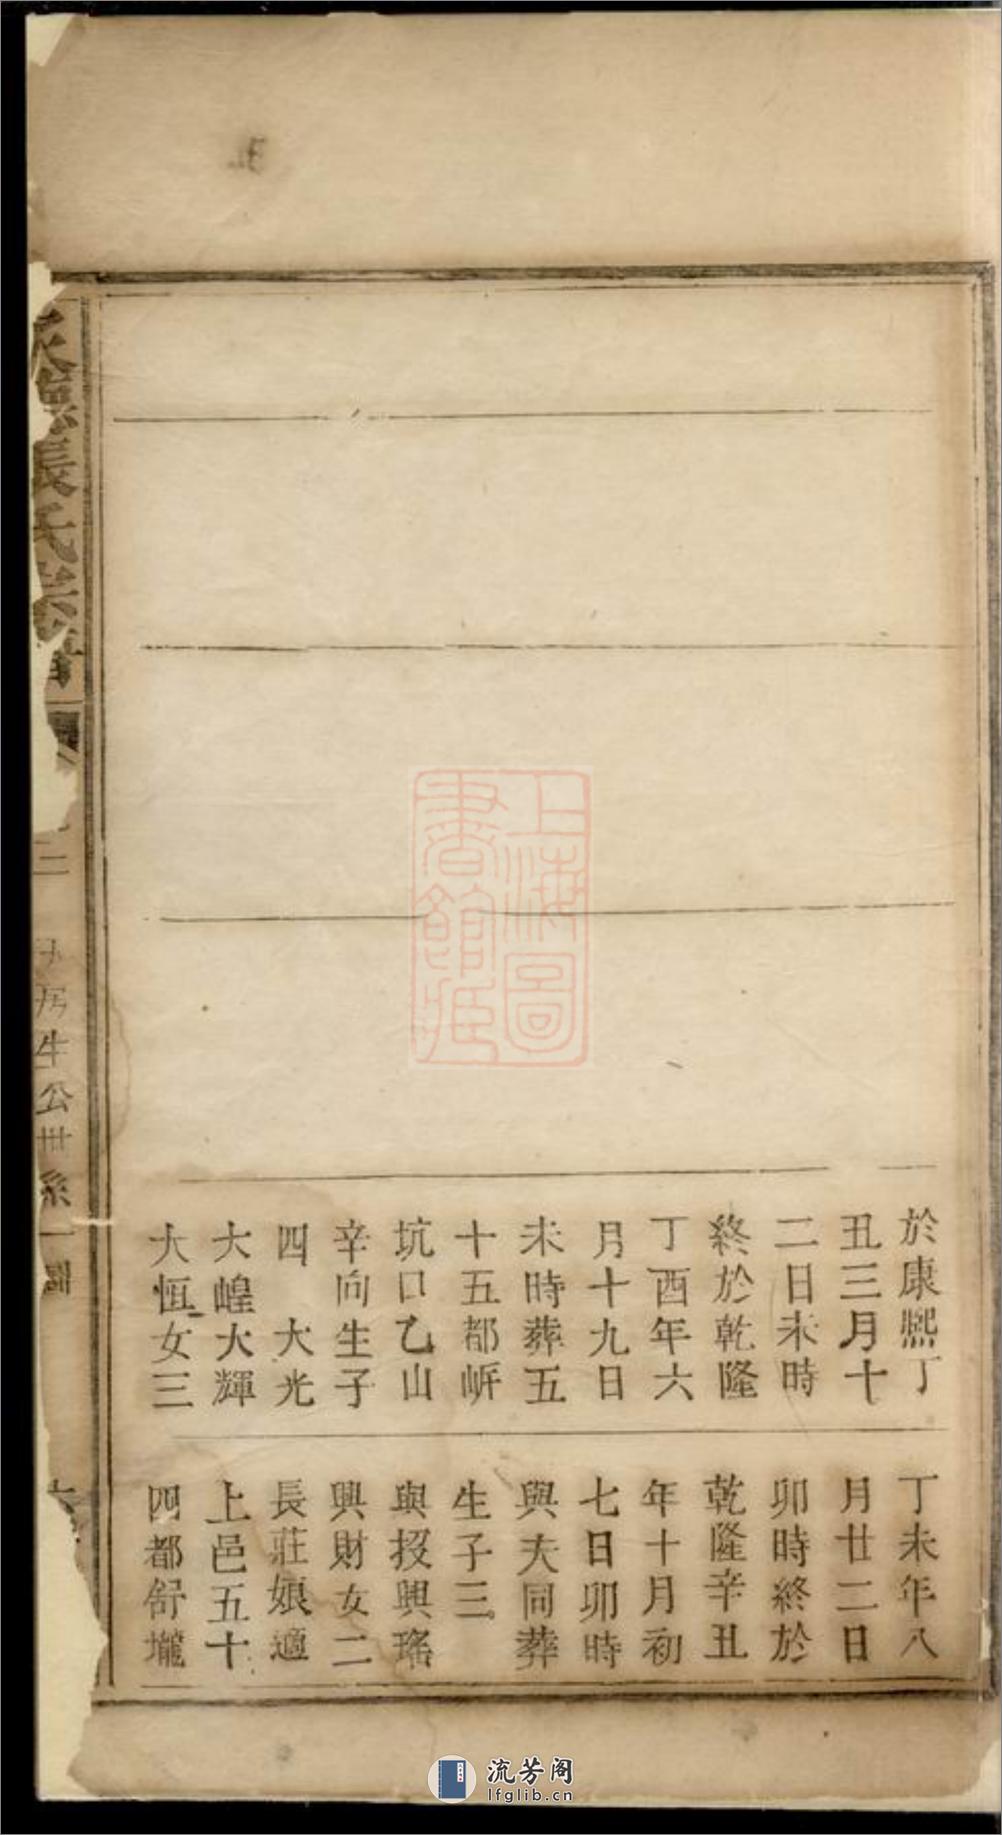 於康熙丁
丑三月十
二日未時
終於乾隆
丁酉年六
月十九日
未時葬五
十五都岍
坑口乙山
辛向生子
四　大光
大煌大輝
大恒女三
丁未年八
月廿二日
卯時終於
乾隆辛丑
年十月初
七日卯時
與夫同葬
生子三
與投興瑤
興財女二
長莊娘適
上邑五十
四都舒壠
張氏宗譜
居生公世系
上海圖
書館藏
流芳阁
lfglib.cn